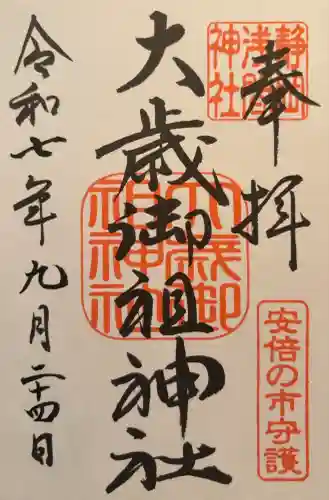 奉拝
静岡浅間神社
安倍の市守護
大歳御祖神社
大歳御祖神社
令和七年九月二十四日